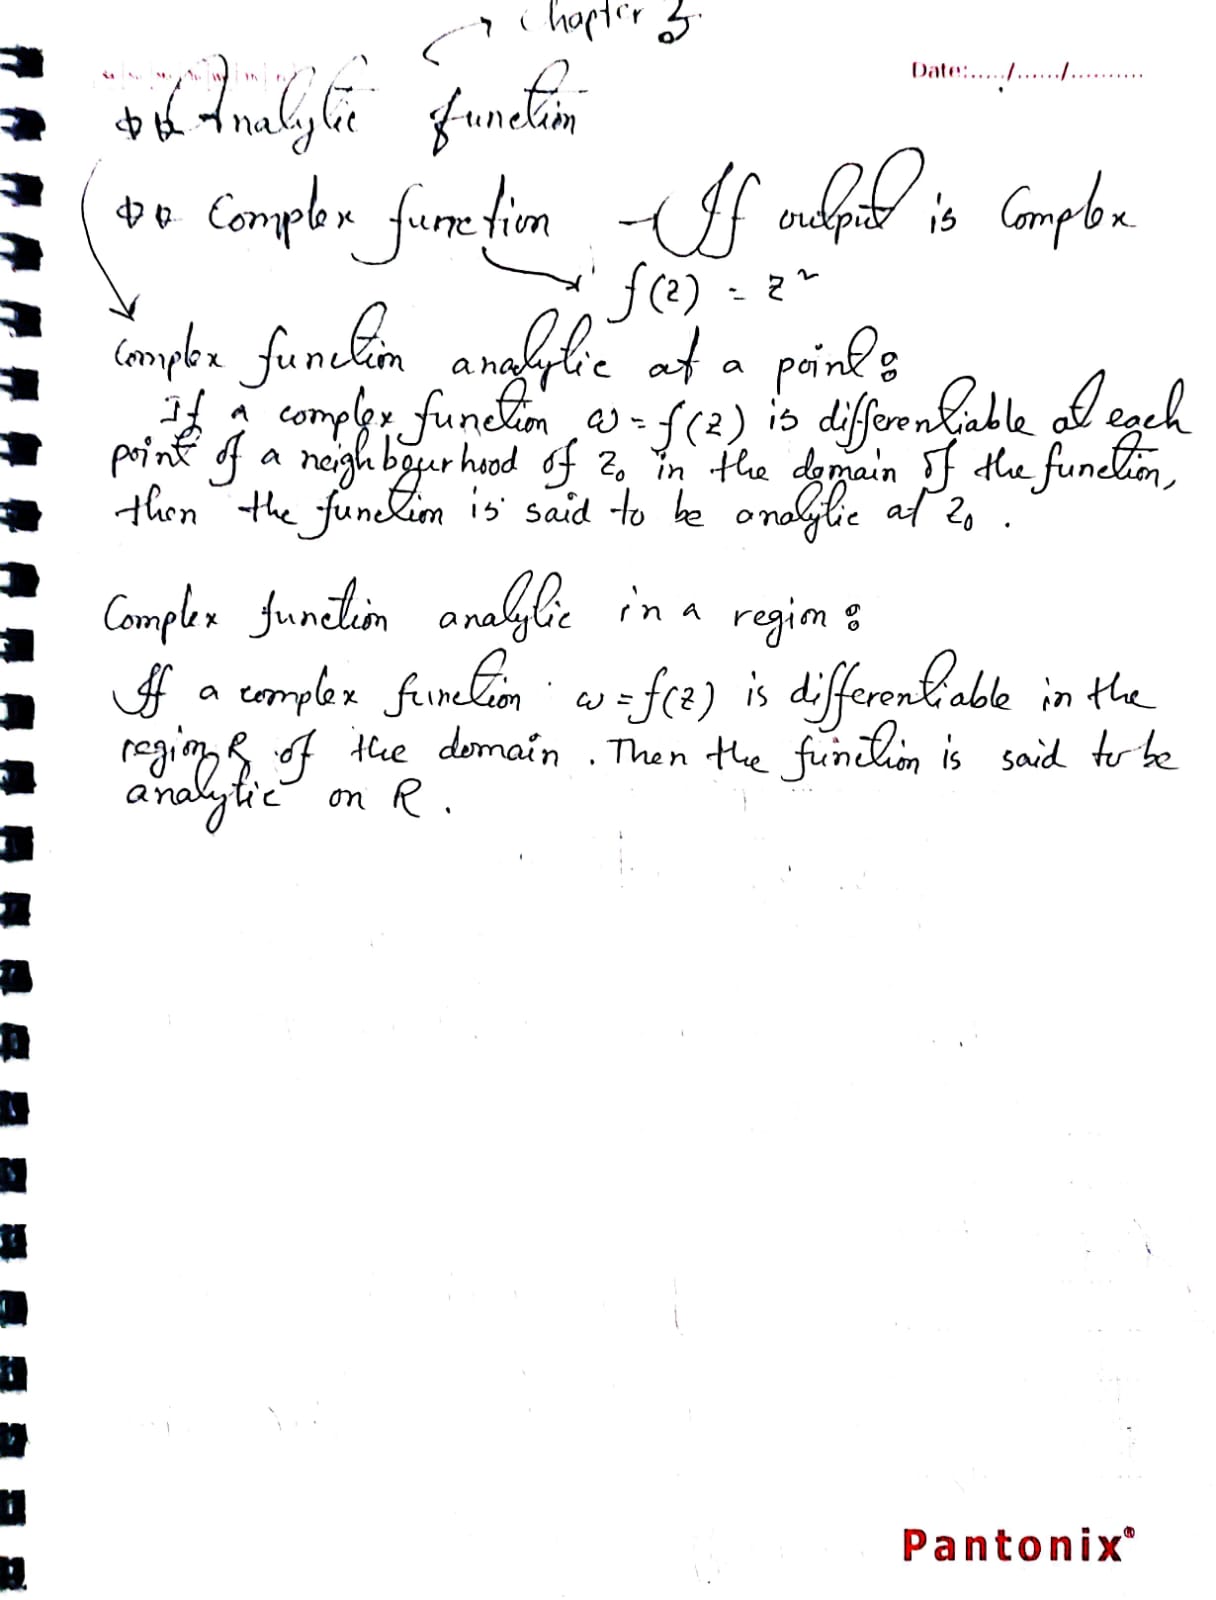 Chapter 3.
Date:...../....../..........
Analytic function
Complex function → If output is Complex
f(z) = z²
Complex function analytic at a point:
If a complex function ω = f(z) is differentiable at each
point of a neighbourhood of z₀ in the domain of the function,
then the function is said to be analytic at z₀ .
Complex function analytic in a region:
If a complex function ω = f(z) is differentiable in the
region R of the domain . Then the function is said to be
analytic on R .
Pantonix®